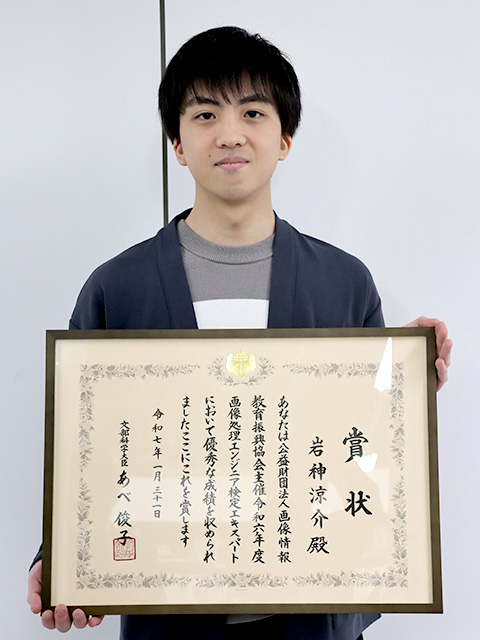 賞状
岩神涼介殿
あなたは公益財団法人画像情報
教育振興協会主催令和六年度
画像処理エンジニア検定エキスパート
において優秀な成績を収められ
ましたここにこれを賞します
令和七年一月三十一日
文部科学大臣 あべ俊子